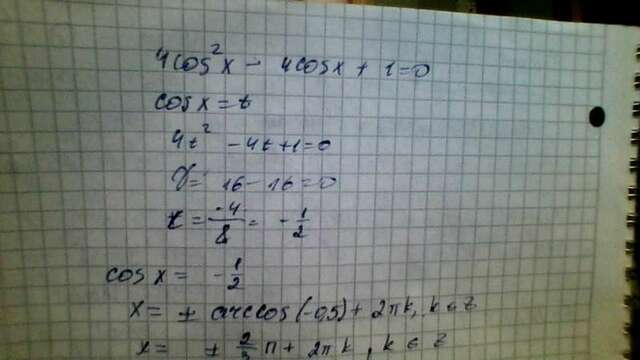 4cos²x - 4cosx + 1 = 0
cosx = t
4t² - 4t + 1 = 0
D = 16 - 16 = 0
t = -4/8 = -1/2
cosx = -1/2
x = ± arccos(-0,5) + 2πk, k ∈ z
x = ± 2/3 π + 2πk, k ∈ z